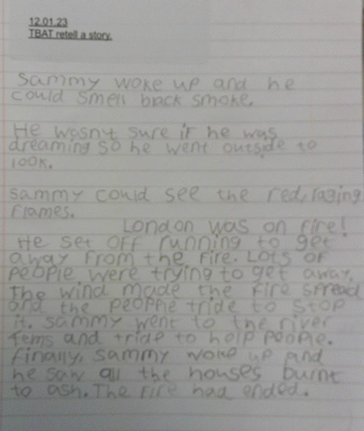 12.01.23
TBAT retell a story.
Sammy woke up and he
could smell black smoke.
He wasnt sure if he was
dreaming so he went outside to
look.
Sammy could see the red, raging
flames.
London was on fire!
He set off running to get
away from the fire. Lots of
people were trying to get away.
The wind made the fire spread
and the peophe tride to stop
it. Sammy went to the river
tems and tride to help people.
Finally, Sammy woke up and
he saw all the houses burnt
to ash. The fire had ended.